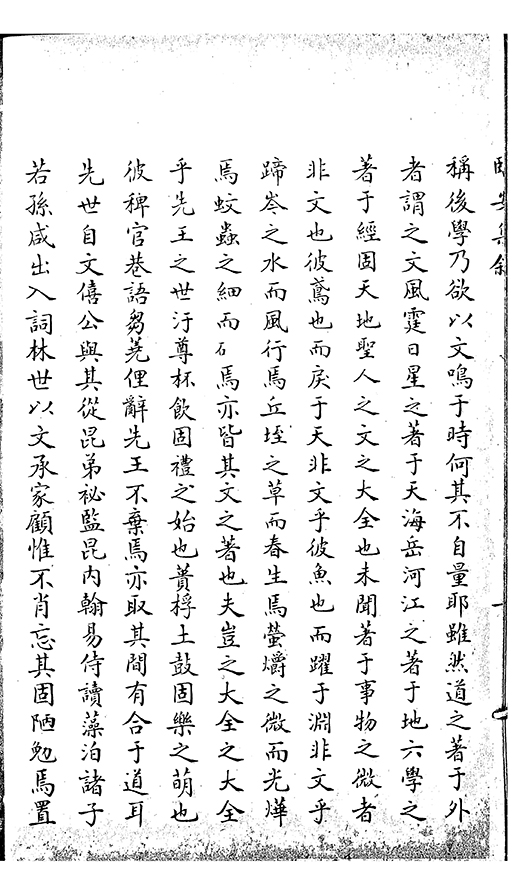 稱後學乃欲以文鳴于時何其不自量耶雖然道之著于外
者謂之文風霆日星之著于天海岳河江之著于地六學之
著于經固天地聖人之文之大全也未聞著于事物之微者
非文也彼鳶也而戾于天非文乎彼魚也而躍于淵非文乎
蹄岺之水而風行焉丘垤之草而春生焉螢爝之微而光燁
焉蚊蟲之細而石焉亦皆其文之著也夫豈之大全之大全
乎先王之世汙尊杯飲固禮之始也蕢桴土鼓固樂之萌也
彼稗官巷語芻蕘俚辭先王不棄焉亦取其間有合于道耳
先世自文僖公與其從昆弟祕監昆內翰易侍讀藻泊諸子
若孫咸出入詞林世以文承家顧惟不肖忘其固陋勉焉置